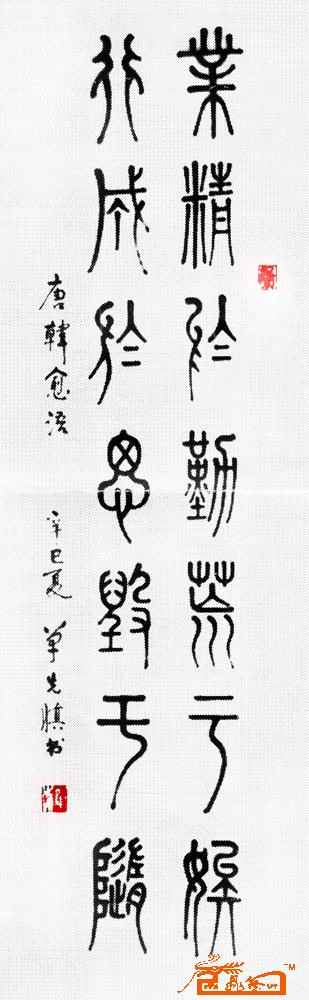 業精於勤荒于嬉
行成於思毀于隨
唐韓愈語 辛巳夏 先 书